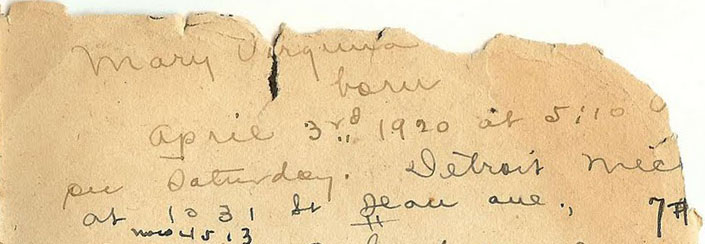 Mary Virginia
born
April 3rd 1920 at 5:10
Saturday. Detroit Mic
at 1031 St Jean ave., 7
now 4513